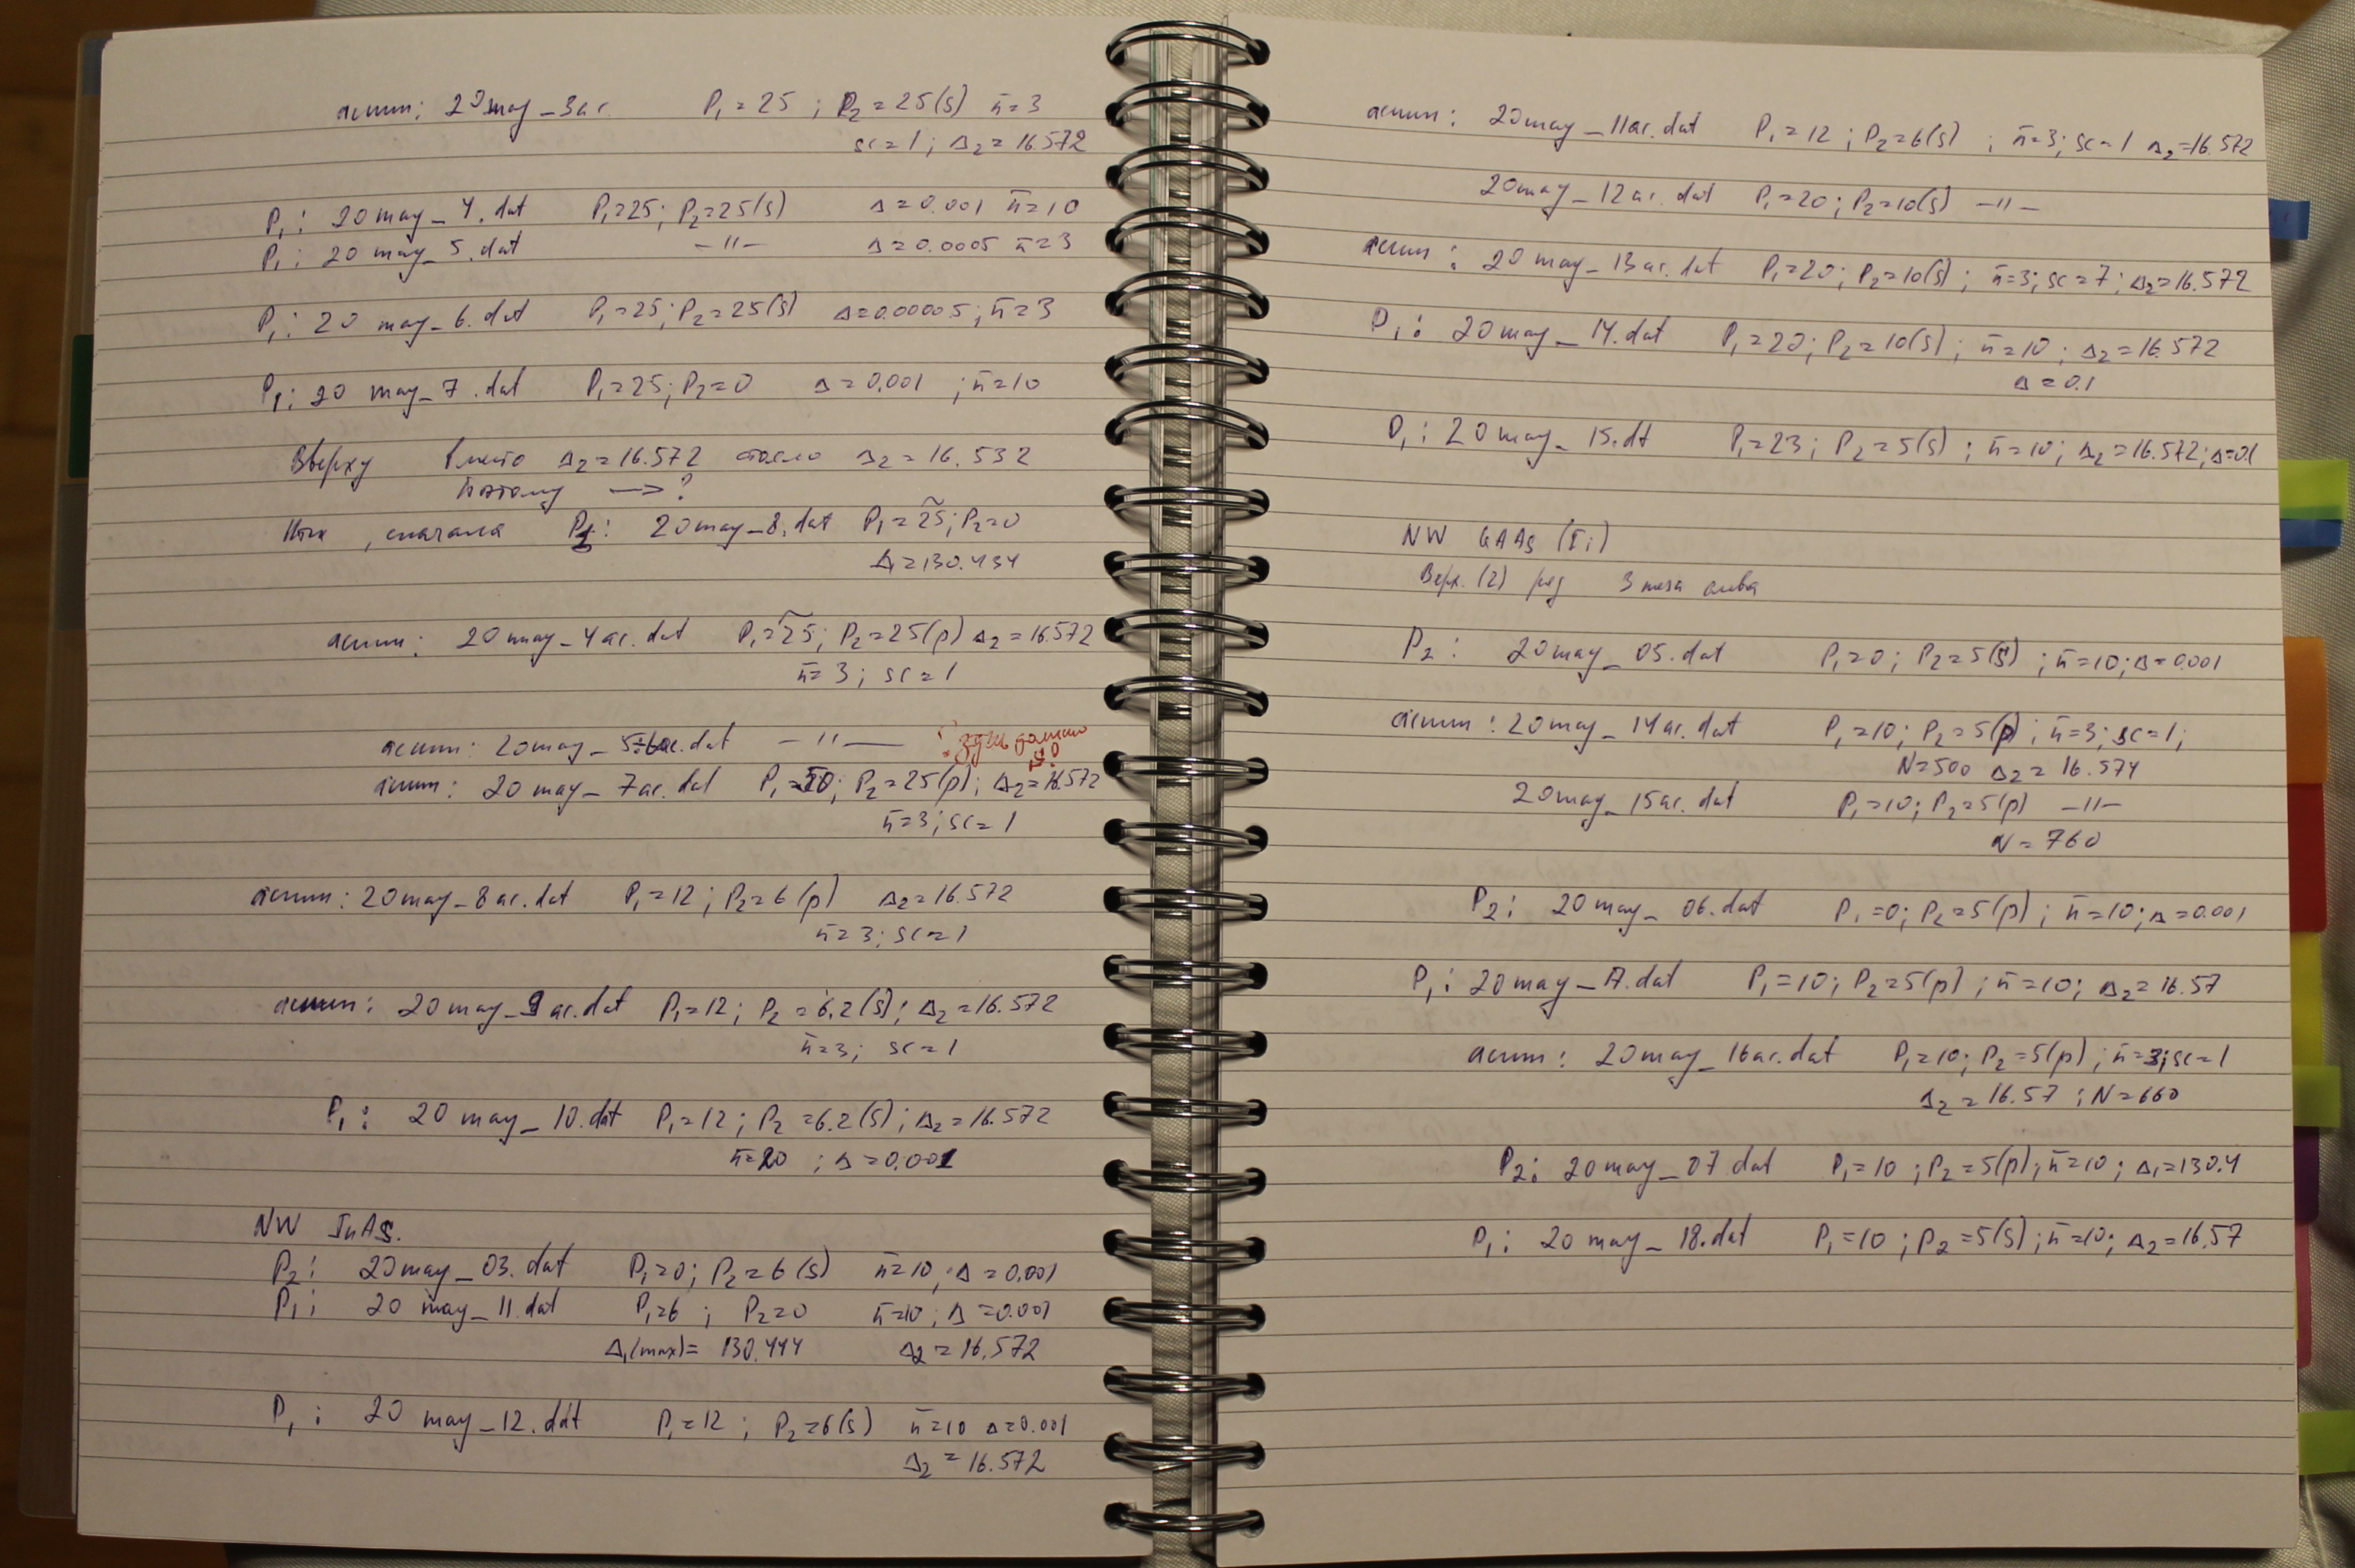 асимм: 20may_3ac. P₁=25 ; P₂=25(s) n̄=3
sc=1 ; Δ₂=16.572
P₁: 20may_4.dat P₁=25; P₂=25(s) Δ=0.001 n̄=10
P₁: 20may_5.dat —"— Δ=0.0005 n̄=3
P₁: 20 may_6.dat P₁=25; P₂=25(s) Δ=0.00005; n̄=3
P₁: 20 may_7.dat P₁=25; P₂=0 Δ=0.001 ; n̄=10
Вверху вместо Δ₂=16.572 стояло Δ₂=16.532
поэтому —>?
Итак, сначала P₁: 20may_8.dat P₁=2̃5; P₂=0
Δ₁=130.434
асимм: 20may_4ac.dat P₁=2̃5; P₂=25(p) Δ₂=16.572
n̄=3; sc=1
асимм: 20may_5÷6ac.dat —"—
асимм: 20 may_7ac.dat P₁=50; P₂=25(p); Δ₂=16.572
n̄=3; sc=1
асимм: 20may_8ac.dat P₁=12; P₂=6(p) Δ₂=16.572
n̄=3; sc=1
асимм: 20may_9ac.dat P₁=12; P₂=6.2(s); Δ₂=16.572
n̄=3; sc=1
P₁: 20 may_10.dat P₁=12; P₂=6.2(s); Δ₂=16.572
n̄=20 ; Δ=0.001
NW InAs.
P₂: 20may_03.dat P₁=0; P₂=6(s) n̄=10; Δ=0.001
P₁: 20 may_11.dat P₁=6 ; P₂=0 n̄=10; Δ=0.001
Δ₁(max)=130.444 Δ₂=16.572
P₁: 20 may_12.dat P₁=12; P₂=6(s) n̄=10 Δ=0.001
Δ₂=16.572
асимм: 20may_11ac.dat P₁=12; P₂=6(s) ; n̄=3; sc=1 Δ₂=16.572
20may_12ac.dat P₁=20; P₂=10(s) —"—
асимм: 20 may_13ac.dat P₁=20; P₂=10(s); n̄=3; sc=7; Δ₂=16.572
P₁: 20may_14.dat P₁=20; P₂=10(s); n̄=10; Δ₂=16.572
Δ=0.1
P₁: 20may_15.dt P₁=23; P₂=5(s); n̄=10; Δ₂=16.572; Δ=0.1
NW GAAs (Ti)
Верх. (2) ряд 3 меза слева
P₂: 20may_05.dat P₁=0; P₂=5(s) ; n̄=10; Δ=0.001
асимм: 20may_14ac.dat P₁=10; P₂=5(p); n̄=3; sc=1;
N=500 Δ₂=16.574
20may_15ac.dat P₁=10; P₂=5(p) —"—
N=760
P₂: 20may_06.dat P₁=0; P₂=5(p); n̄=10; Δ=0.001
P₁: 20may_17.dat P₁=10; P₂=5(p); n̄=10; Δ₂=16.57
асимм: 20may_16ac.dat P₁=10; P₂=5(p); n̄=3; sc=1
Δ₂=16.57 ; N=660
P₂: 20may_07.dat P₁=10; P₂=5(p); n̄=10; Δ₁=130.4
P₁: 20 may_18.dat P₁=10; P₂=5(s); n̄=10; Δ₂=16.57